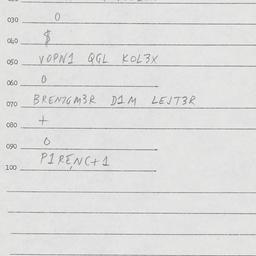 030 0
040 $
050 VOPN1 QGL KOL3X
060 0
070 BRENTGM3R D1M LEJT3R
080 +
090 0
100 P1RENC+1